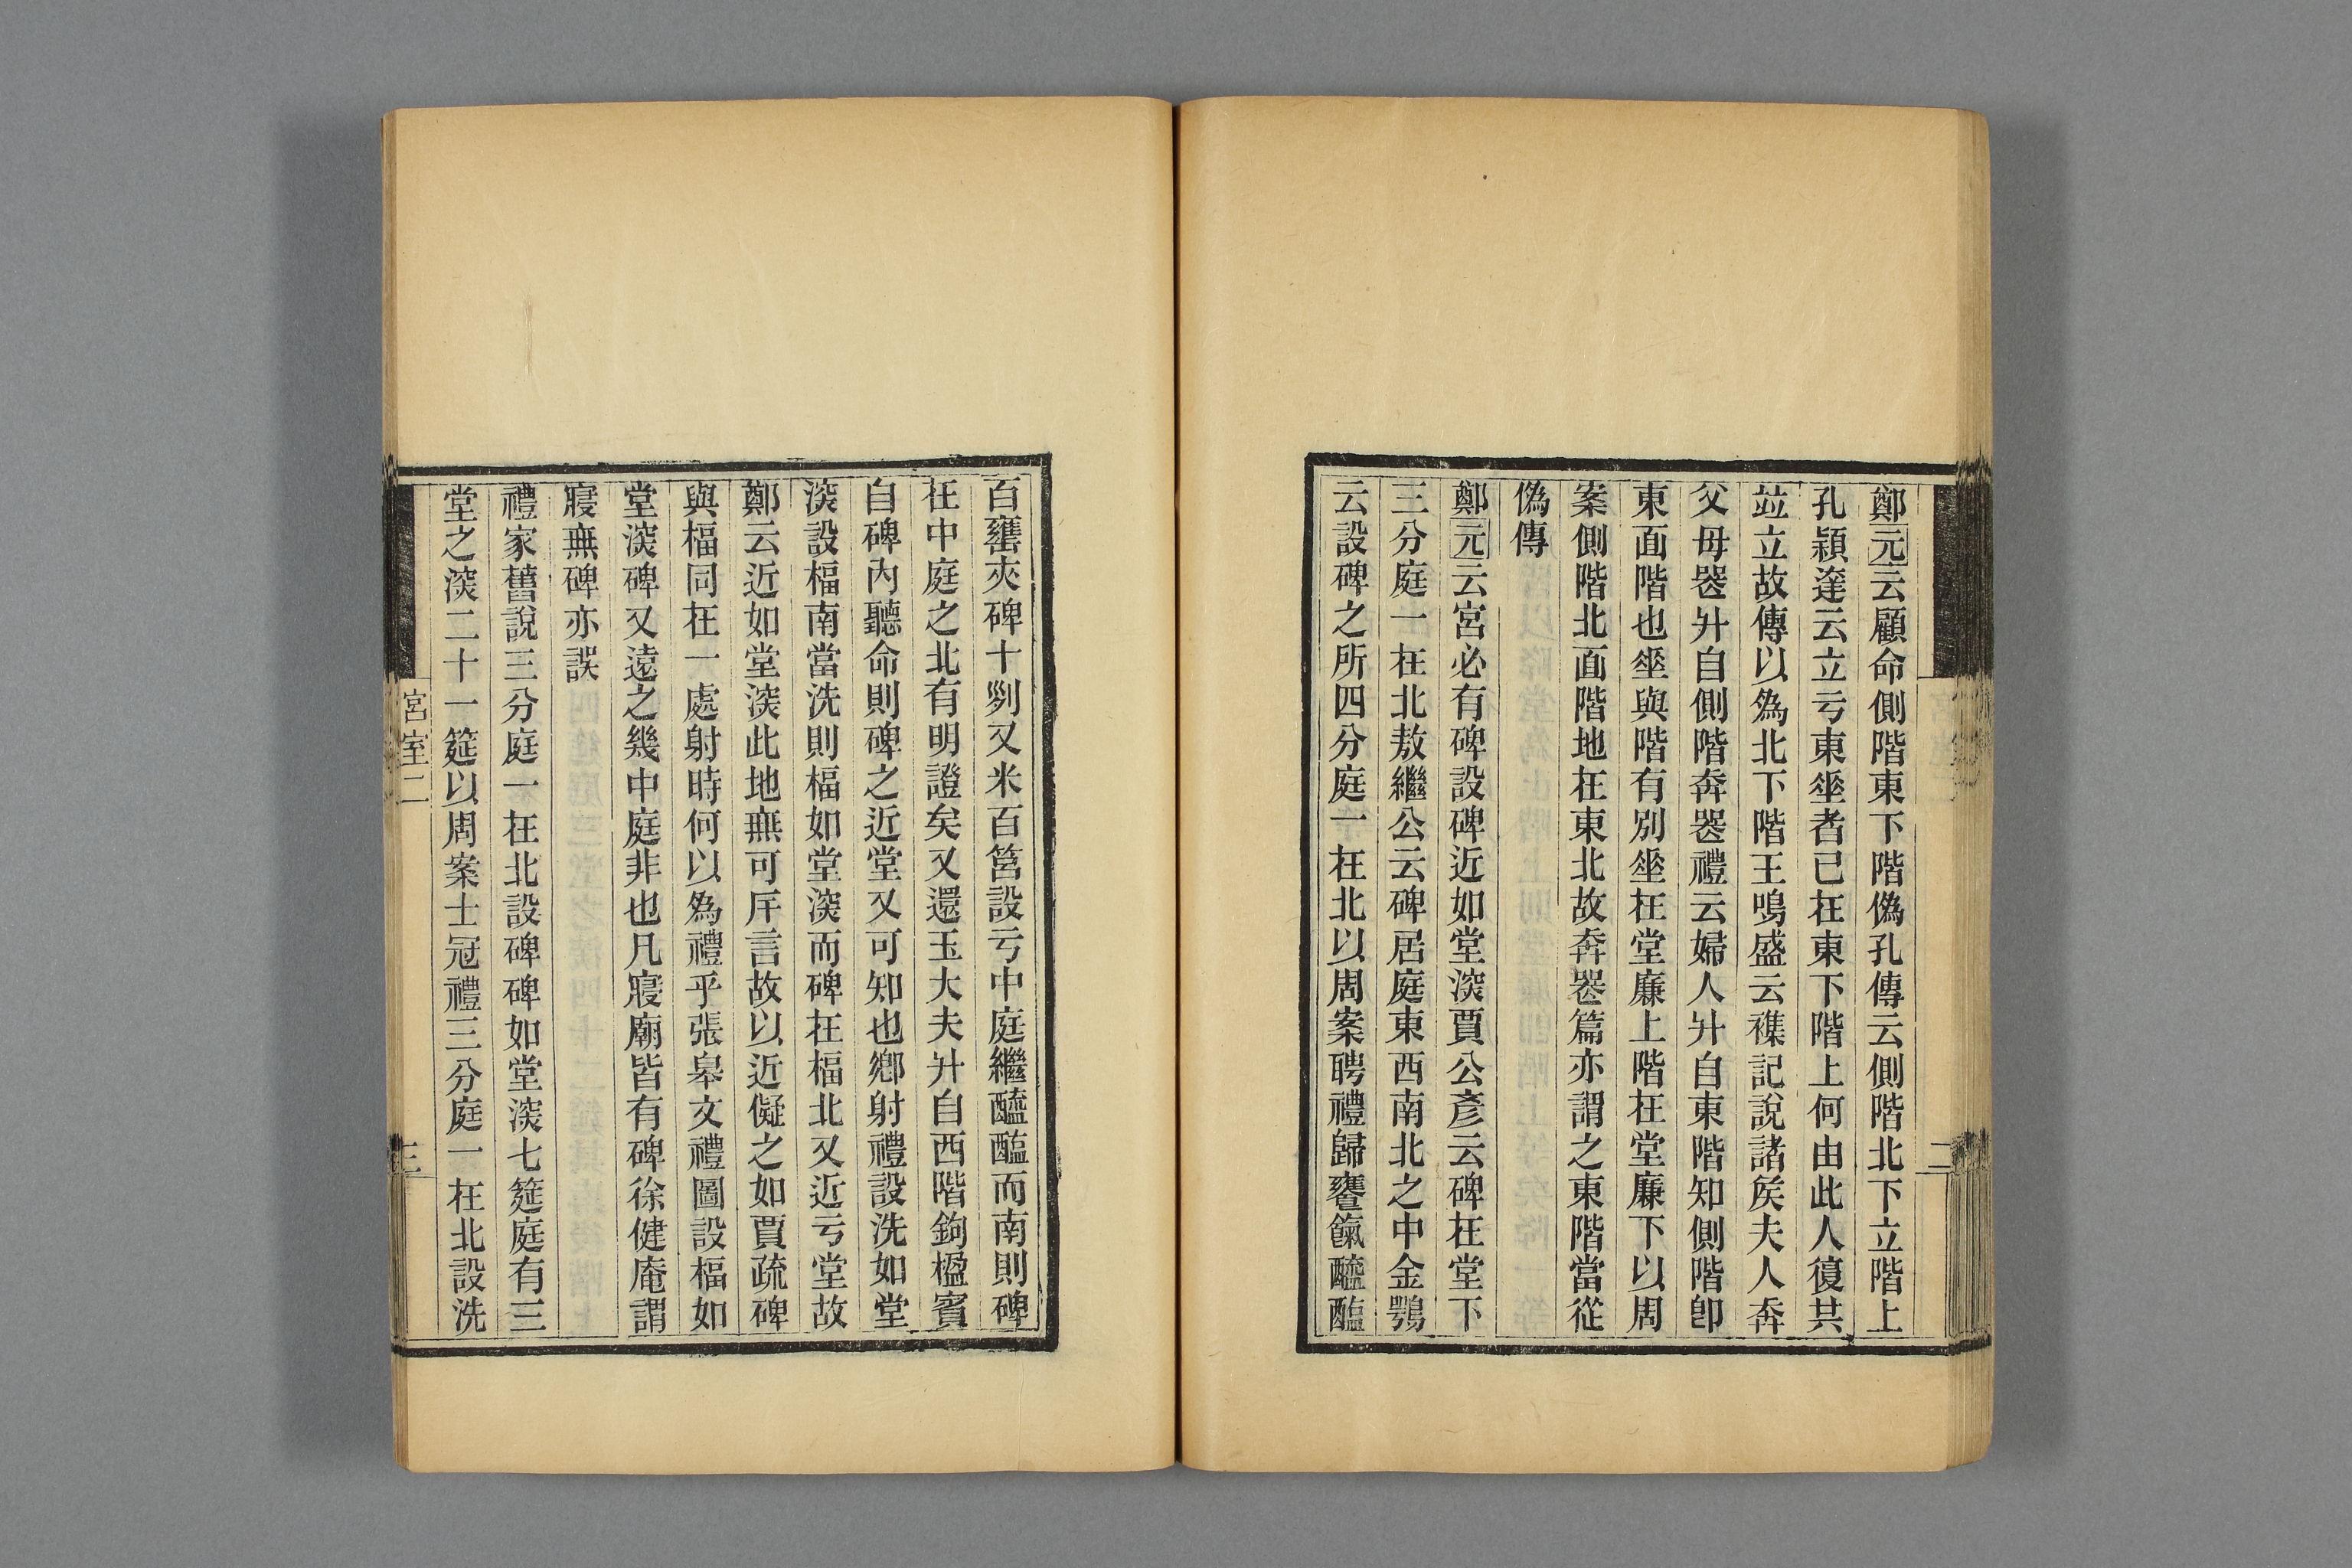 鄭元云顧命側階東下階僞孔傳云側階北下立階上
孔穎達云立亏東坙者已在東下階上何由此人復共
竝立故傳以為北下階王鳴盛云襍記說諸矦夫人奔
父母喪升自側階奔喪禮云婦人升自東階知側階卽
東面階也坙與階有別坙在堂廉上階在堂廉下以周
案側階北面階地在東北故奔喪篇亦謂之東階當從
僞傳
鄭元云宮必有碑設碑近如堂深賈公彥云碑在堂下
三分庭一在北敖繼公云碑居庭東西南北之中金鶚
云設碑之所四分庭一在北以周案聘禮歸饔餼醯醢
百罋夾碑十列又米百筥設亏中庭繼醯醢而南則碑
在中庭之北有明證矣又還玉大夫升自西階鉤楹賓
自碑內聽命則碑之近堂又可知也鄉射禮設洗如堂
深設楅南當洗則楅如堂深而碑在楅北又近亏堂故
鄭云近如堂深此地無可厈言故以近儗之如賈疏碑
與楅同在一處射時何以為禮乎張皋文禮圖設楅如
堂深碑又遠之幾中庭非也凡寢廟皆有碑徐健庵謂
寢無碑亦誤
禮家舊說三分庭一在北設碑碑如堂深七筵庭有三
堂之深二十一筵以周案士冠禮三分庭一在北設洗
宮室二
三
二